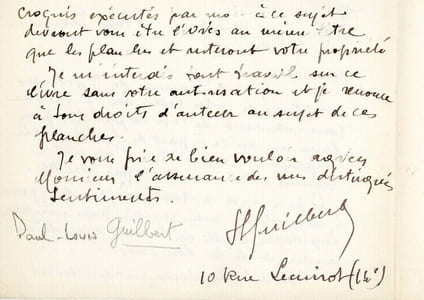 croquis exécutés par moi à ce sujet
devront vous être livrés au même titre
que les planches et resteront votre propriété
Je m'interdis tout travail sur ce
livre sans votre autorisation et je renonce
à tous droits d'auteur au sujet de ces
planches.
Je vous prie de bien vouloir agréer
Monsieur l'assurance de mes distingués
sentiments.
Paul-Louis Guilbert
PLGuilbert
10 Rue (14e)